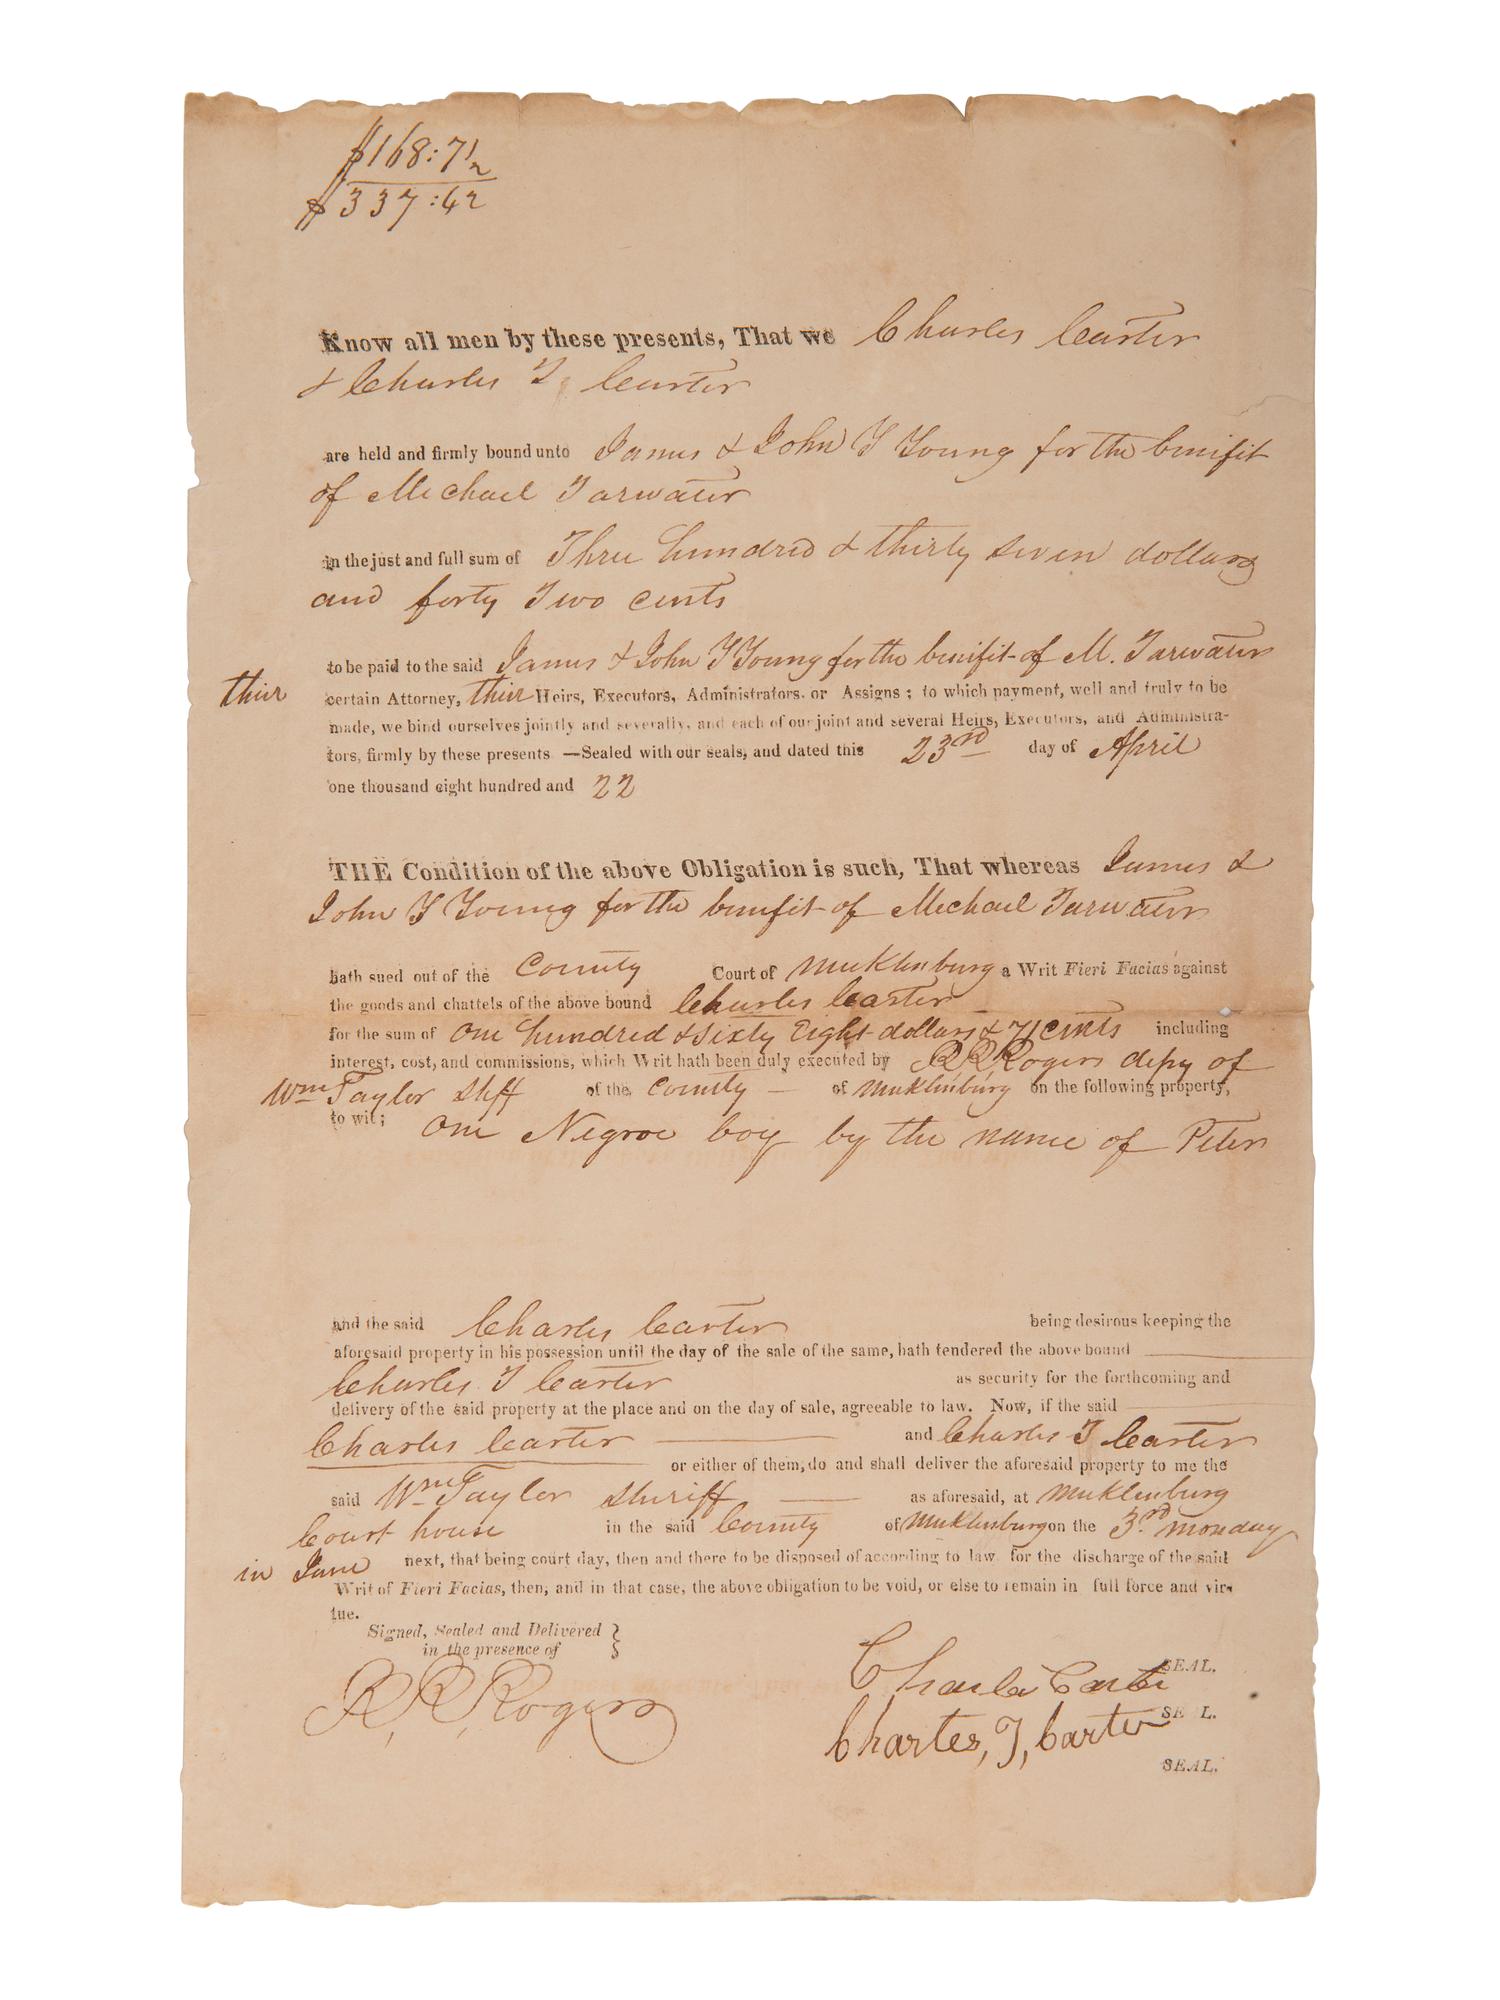 $168:71
$337:42
Know all men by these presents, That we Charles Carter
& Charles T Carter
are held and firmly bound unto James & John Y Young for the benifit
of Michael Tarwater
in the just and full sum of Three hundred & thirty seven dollars
and forty Two cents
to be paid to the said James & John Y Young for the benifit of M. Tarwater
their certain Attorney, their Heirs, Executors, Administrators, or Assigns; to which payment, well and truly to be
made, we bind ourselves jointly and severally, and each of our joint and several Heirs, Executors, and Administra-
tors, firmly by these presents —Sealed with our seals, and dated this 23rd day of April
one thousand eight hundred and 22
THE Condition of the above Obligation is such, That whereas James &
John Y Young for the benifit of Michael Tarwater
hath sued out of the County Court of Mecklinburg a Writ Fieri Facias against
the goods and chattels of the above bound Charles Carter
for the sum of One hundred & Sixty Eight dollars & 71 cents including
interest, cost, and commissions, which Writ hath been duly executed by R R Rogers depy of
Wm Taylor shff of the County — of Mecklinburg on the following property,
to wit; One Negroe boy by the name of Peter
and the said Charles Carter being desirous keeping the
aforesaid property in his possession until the day of the sale of the same, hath tendered the above bound
Charles T Carter as security for the forthcoming and
delivery of the said property at the place and on the day of sale, agreeable to law. Now, if the said
Charles Carter and Charles T Carter
or either of them, do and shall deliver the aforesaid property to me the
said Wm Taylor Sheriff as aforesaid, at Mecklenburg
Court house in the said County of Mecklenburg on the 3rd monday
in June next, that being court day, then and there to be disposed of according to law for the discharge of the said
Writ of Fieri Facias, then, and in that case, the above obligation to be void, or else to remain in full force and vir-
tue.
Signed, Sealed and Delivered }
in the presence of
R, R, Rogers
Charles Carter SEAL.
Charles, T, Carter SEAL.
SEAL.